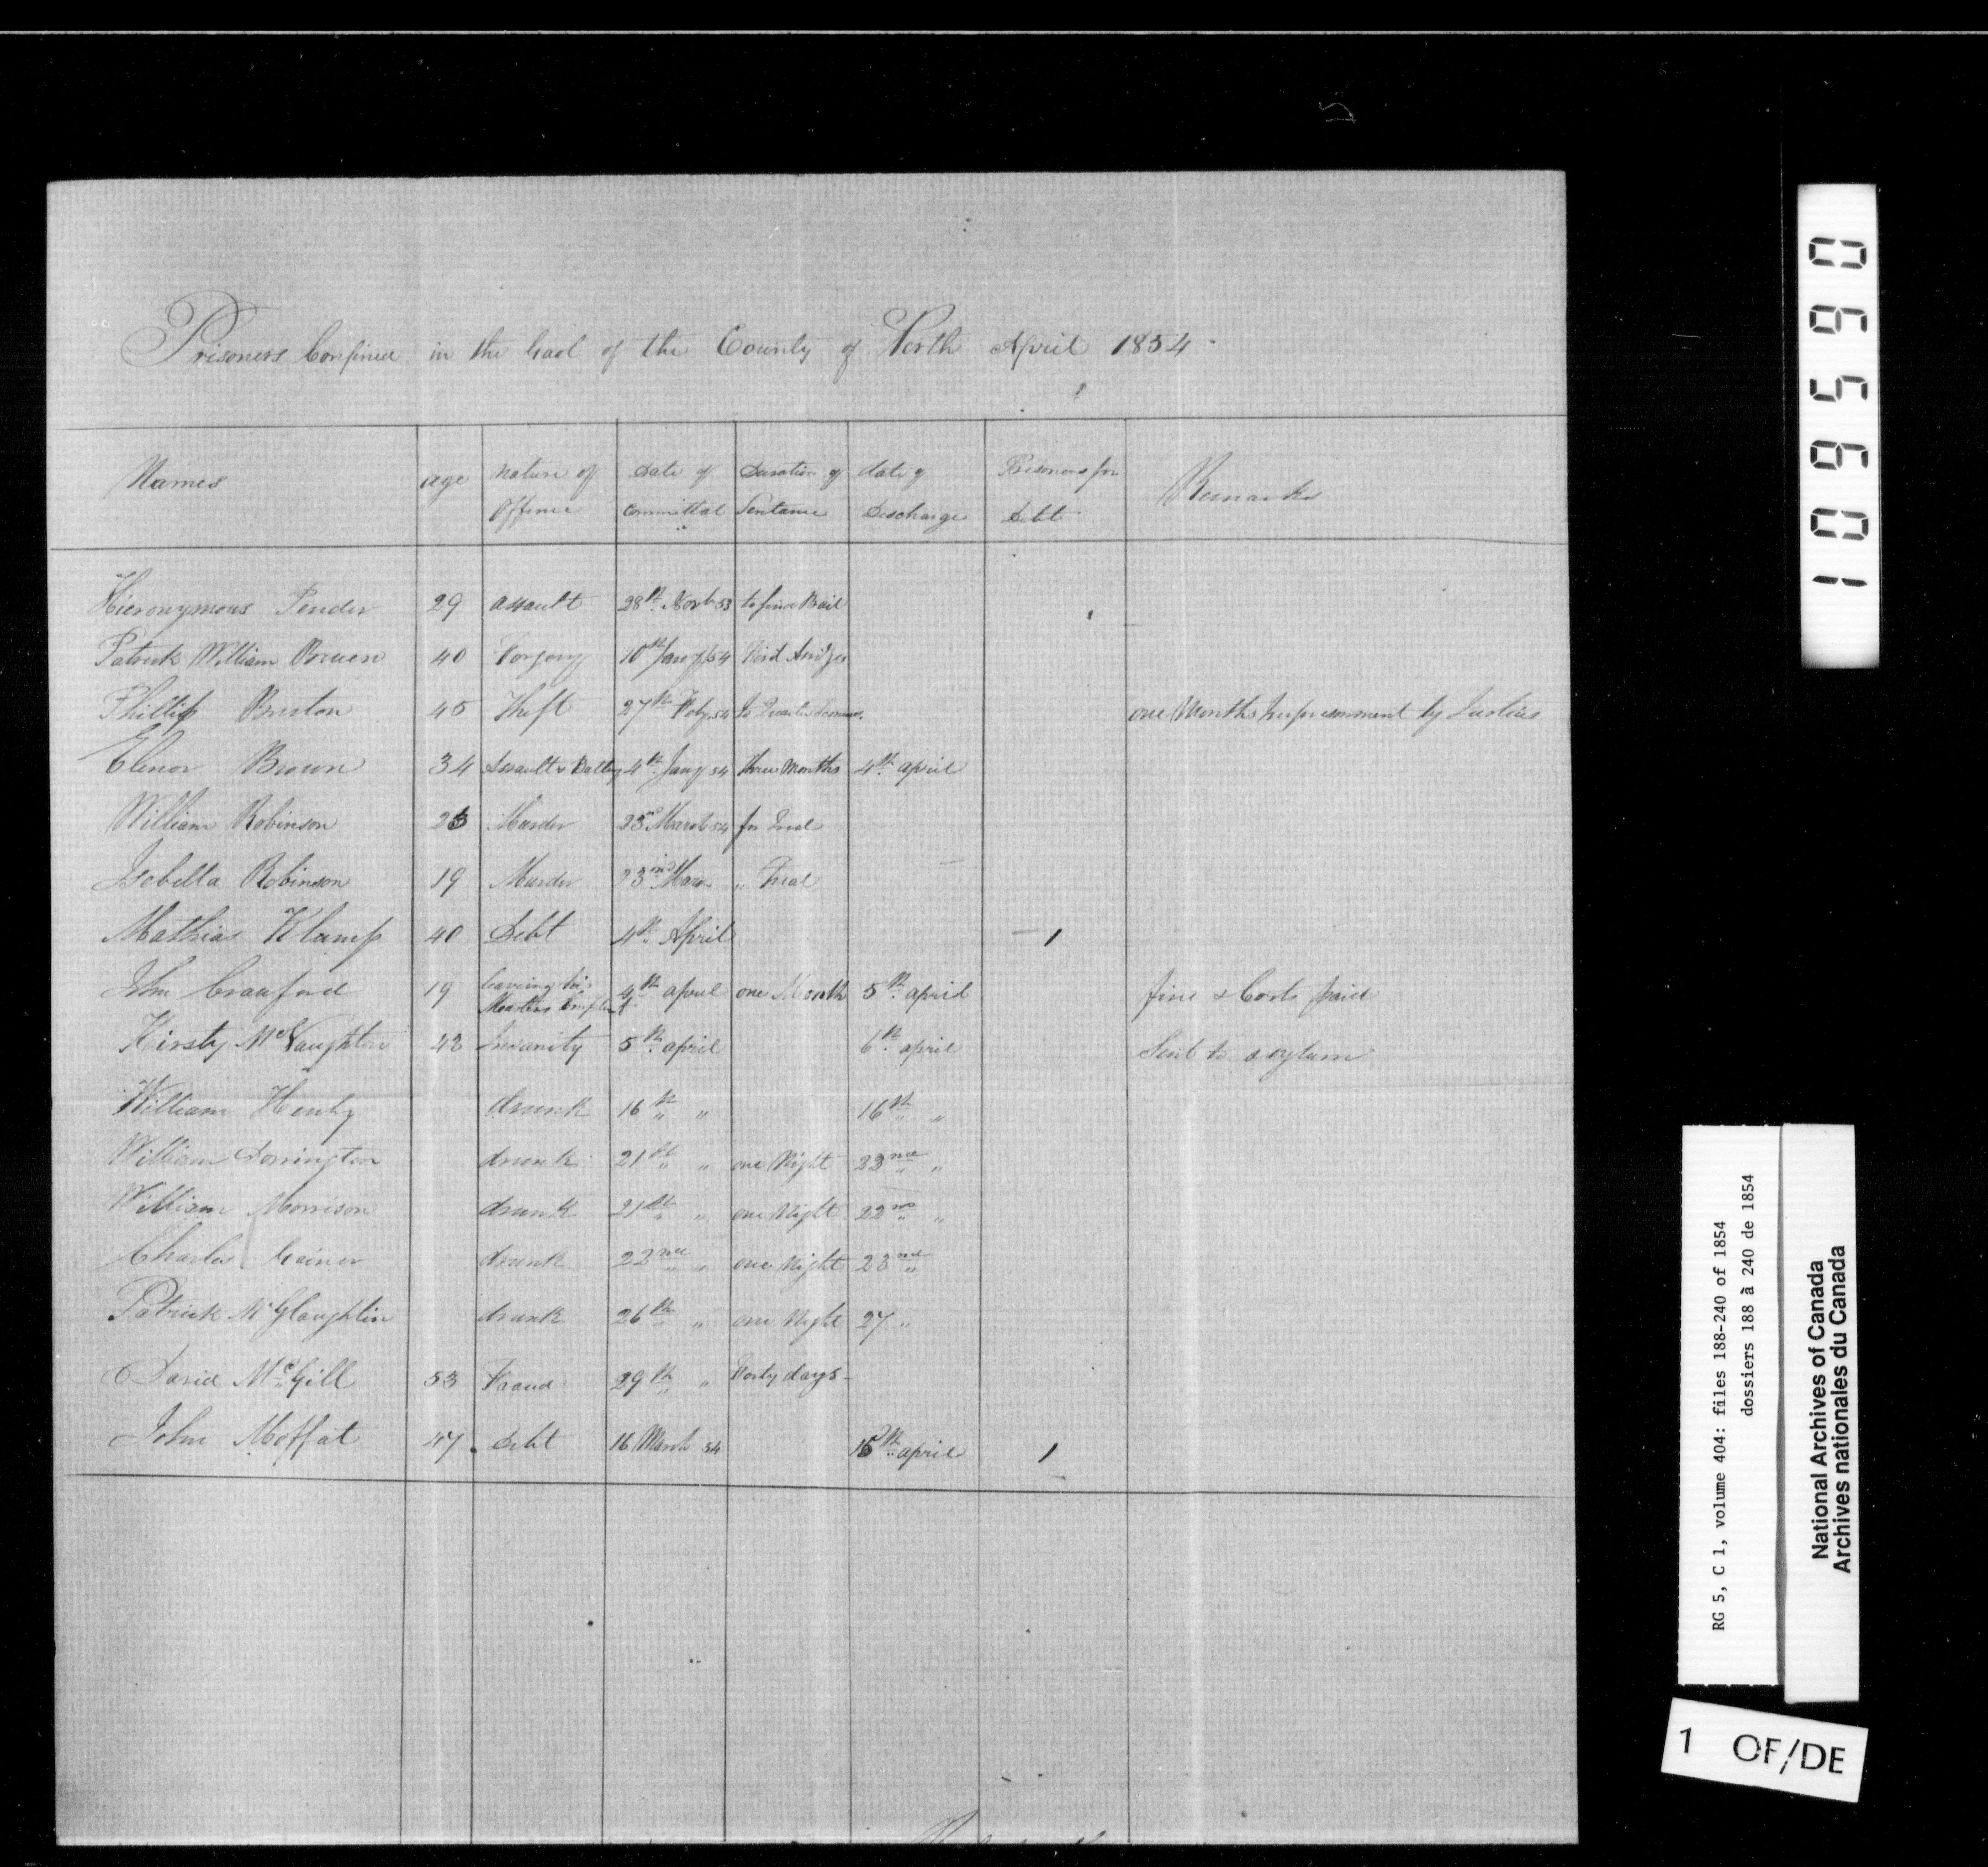 Prisoners Confined in the Gaol of the County of Perth April 1854
Names age Nature of Offence Date of Committal Duration of Sentance date of Discharge Prisoners for Debt Remarks
Hieronymous Pender 29 assault 28th Novb 53 to find Bail
Patrick William Bruen 40 Forgery 10th Jany 54 Next Assizes
Phillip Burton 45 Theft 27th Feby 54 To Quarter Sessions one Months Imprisonment by Justices
Elenor Brown 34 Assault & Battery 4th Jany 54 three Months 4th april
William Robinson Murder 23rd March 54 for Trial
Isobella Robinson 19 Murder 23rd March " Trial
Mathias Klump 40 Debt 4th April 1
John Crauford 19 leaving his Masters Employ 4th april one Month 5th april fine & Costs paid
Kirsty McNaughton 42 Insanity 5th april 6th april Sent to asylum
William Henly drunk 16th " 16th "
William Dorrington drunk 21st " one Night "
William Morrison drunk 21st " one Night 22nd "
Charles Gainer drunk 22nd " one Night 23rd "
Patrick McGlaughlin drunk 26th " one Night 27 "
David McGill 53 Fraud 29th " Forty days
John Moffat 47 Debt 16 March 54 15th april 1
109590
RG 5, C 1, volume 404: files 188-240 of 1854
dossiers 188 à 240 de 1854
National Archives of Canada
Archives nationales du Canada
1 OF/DE